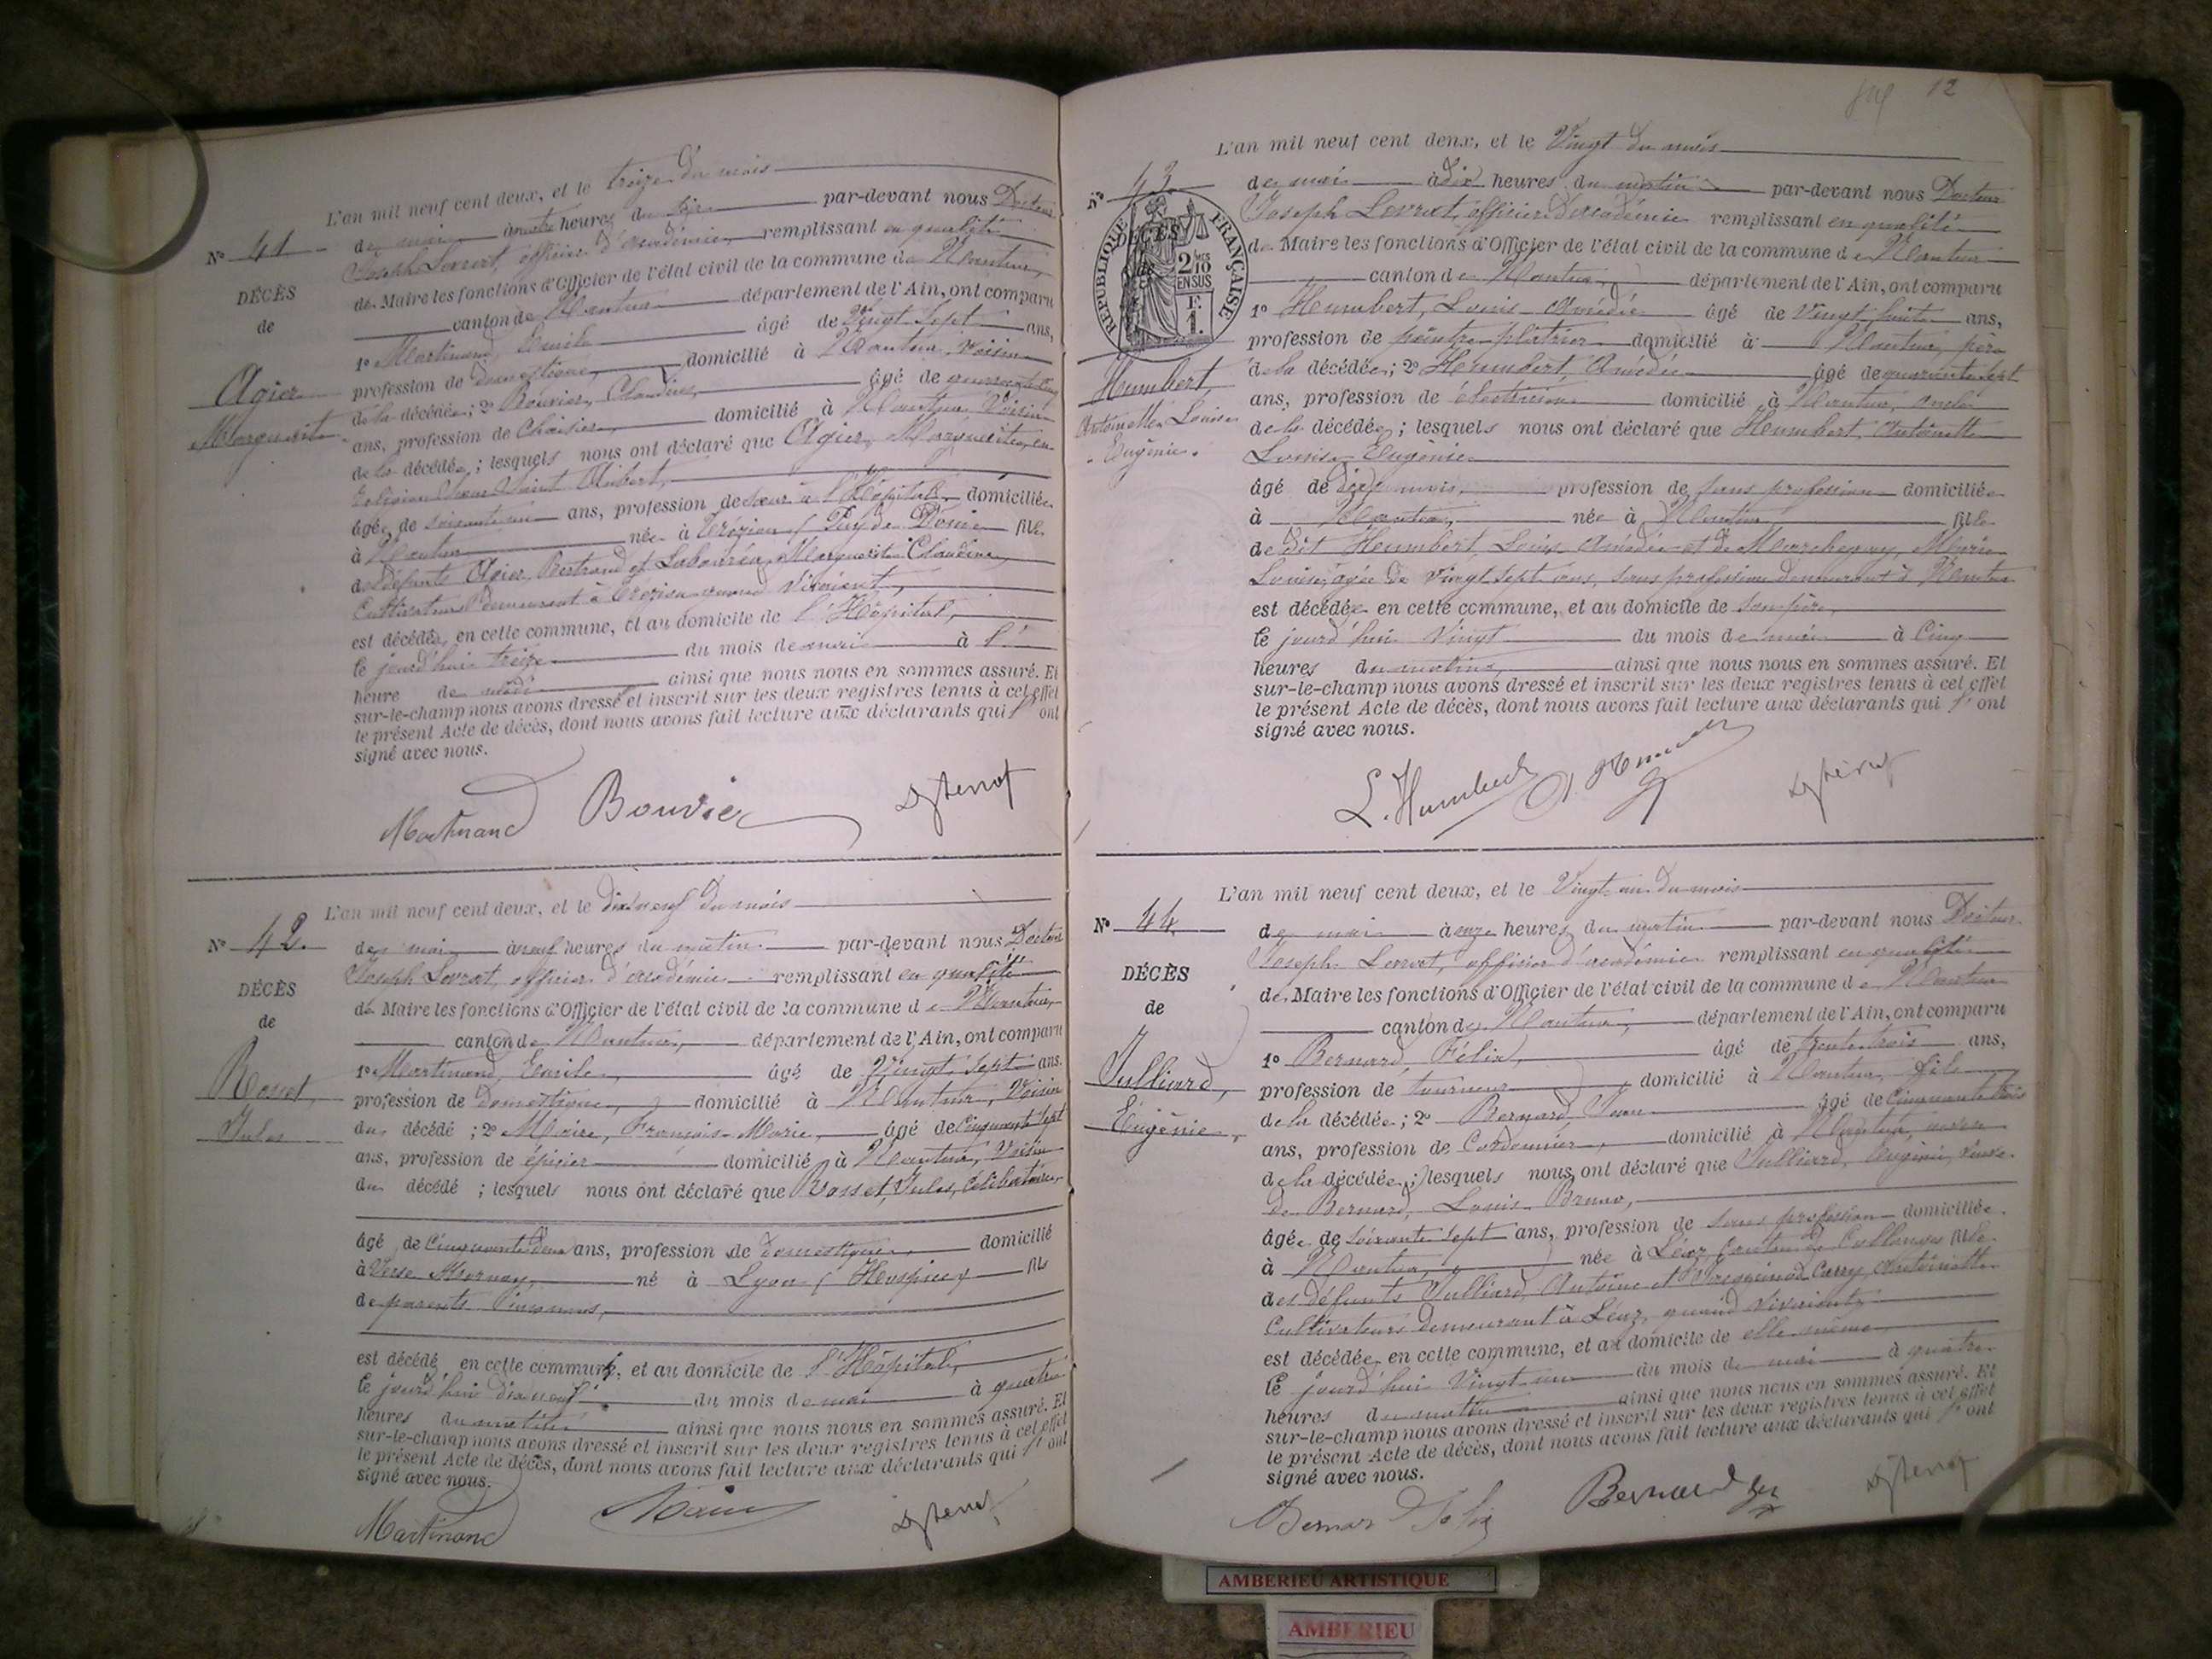 L'an mil neuf cent deux, et le treize du mois
N° 41
de mai à quatre heures du soir par-devant nous Docteur
Joseph Levrat, officier d'académie, remplissant en qualité
DÉCÈS
de Maire les fonctions d'Officier de l'état civil de la commune de Nantua,
de
canton de Nantua département de l'Ain, ont comparu
1° Martinand, Emile âgé de Vingt sept ans,
Agier
profession de domestique, domicilié à Nantua, voisin
Marguerite
de la décédée; 2° Bouvier, Claudius, âgé de quarante cinq
ans, profession de Chaisier, domicilié à Nantua Voisin
de la décédée; lesquels nous ont déclaré que Agier, Marguerite, en
Religion Sœur Saint Aubert,
âgée de soixante un ans, profession de sœur à l'Hôpital, domiciliée
à Nantua née à Trézien (Puy de Dôme fille
de défunts Agier, Bertrand et Marguerite Claudine,
Cultivateurs demeurant à quand vivaient,
est décédée, en cette commune, et au domicile de l'Hôpital,
le jourd'hui treize du mois de mai à l'
heure de midi ainsi que nous nous en sommes assuré. Et
sur-le-champ nous avons dressé et inscrit sur les deux registres tenus à cet effet
le présent Acte de décès, dont nous avons fait lecture aux déclarants qui l' ont
signé avec nous.
Martinand Bouvier
L'an mil neuf cent deux, et le dix neuf du mois
N° 42.
de mai à neuf heures du matin par-devant nous Docteur
Joseph Levrat, officier d'académie remplissant en qualité
DÉCÈS
de Maire les fonctions d'Officier de l'état civil de la commune de Nantua,
de
canton de Nantua, département de l'Ain, ont comparu
1° Martinand, Emile, âgé de Vingt sept ans.
Rosset,
profession de domestique, domicilié à Nantua, Voisin
Jules
du décédé; 2° Maire, François-Marie, âgé de Cinquante sept
ans, profession de épicier domicilié à Nantua, Voisin
du décédé; lesquels nous ont déclaré que Rosset, Jules, célibataire,
âgé de Cinquante deux ans, profession de domestique, domicilié
à né à Lyon (Hospice) fils
de parents inconnus,
est décédé en cette commune, et au domicile de l'Hôpital,
le jourd'hui dix neuf du mois de mai à quatre
heures du matin ainsi que nous nous en sommes assuré. Et
sur-le-champ nous avons dressé et inscrit sur les deux registres tenus à cet effet
le présent Acte de décès, dont nous avons fait lecture aux déclarants qui l' ont
signé avec nous.
Martinand
12
L'an mil neuf cent deux, et le Vingt du mois
N° 43
de mai à dix heures du matin par-devant nous Docteur
Joseph Levrat, officier d'académie remplissant en qualité
RÉPUBLIQUE FRANÇAISE
2/10 MES EN SUS
F. 1.
DÉCÈS
de Maire les fonctions d'Officier de l'état civil de la commune de Nantua
de
canton de Nantua, département de l'Ain, ont comparu
1° Humbert, Louis Amédée âgé de Vingt huit ans,
profession de peintre plâtrier domicilié à Nantua, père
Humbert,
de la décédée; 2° Humbert, Amédée âgé de quarante sept
Antoinette Louise
ans, profession de électricien domicilié à Nantua, oncle
Eugénie.
de la décédée; lesquels nous ont déclaré que Humbert, Antoinette
Louise Eugénie
âgé de mois, profession de sans profession domiciliée
à Nantua, née à Nantua fille
de dit Humbert, Louis Amédée et de Marchegay, Marie
Louise, âgée de vingt sept ans, sans profession demeurant à Nantua
est décédée en cette commune, et au domicile de son père,
le jourd'hui Vingt du mois de mai à Cinq
heures du matin, ainsi que nous nous en sommes assuré. Et
sur-le-champ nous avons dressé et inscrit sur les deux registres tenus à cet effet
le présent Acte de décès, dont nous avons fait lecture aux déclarants qui l' ont
signé avec nous.
L. Humbert
L'an mil neuf cent deux, et le Vingt un du mois
N° 44.
de mai à onze heures du matin par-devant nous Docteur
Joseph Levrat, officier d'académie remplissant en qualité
DÉCÈS
de Maire les fonctions d'Officier de l'état civil de la commune de Nantua
de
canton de Nantua, département de l'Ain, ont comparu
1° Bernard, Félix, âgé de trente trois ans,
Julliard,
profession de tourneur, domicilié à Nantua, fils
Eugénie,
de la décédée; 2° Bernard, Jean âgé de Cinquante trois
ans, profession de Cordonnier, domicilié à Nantua,
de la décédée; lesquels nous ont déclaré que Julliard, Eugénie, veuve
de Bernard, Louis Bruno,
âgée de soixante sept ans, profession de sans profession domiciliée
à Nantua, née à Léaz, Canton de Collonges fille
des défunts Julliard, Antoine et Curry, Antoinette
Cultivateurs demeurant à Léaz, quand vivaient,
est décédée, en cette commune, et au domicile de elle même
le jourd'hui Vingt un du mois de mai à quatre
heures du matin ainsi que nous nous en sommes assuré. Et
sur-le-champ nous avons dressé et inscrit sur les deux registres tenus à cet effet
le présent Acte de décès, dont nous avons fait lecture aux déclarants qui l' ont
signé avec nous.
Bernard Félix Bernard
AMBERIEU ARTISTIQUE
AMBERIEU